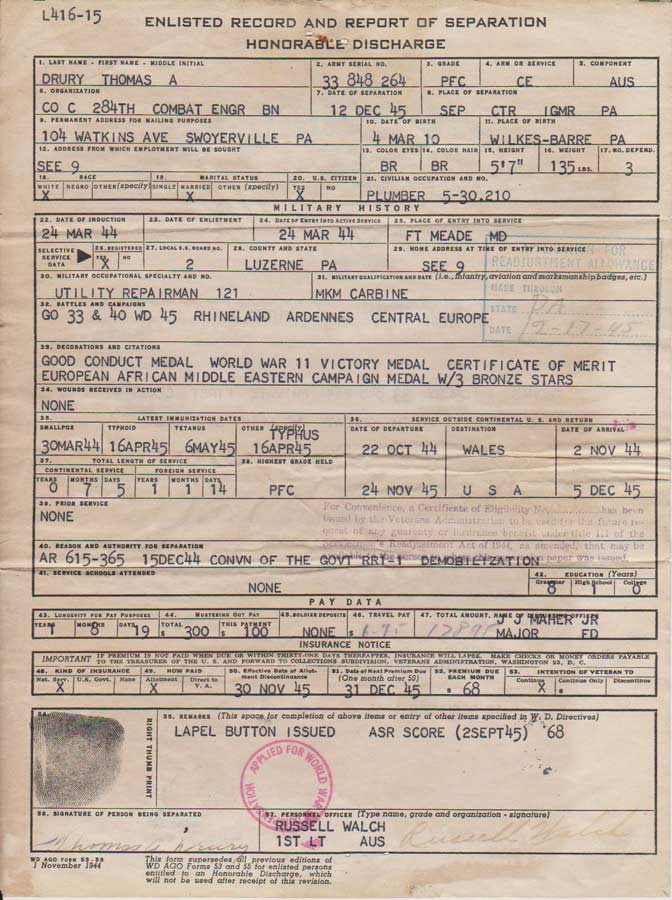 L416-15
ENLISTED RECORD AND REPORT OF SEPARATION
HONORABLE DISCHARGE
1. LAST NAME - FIRST NAME - MIDDLE INITIAL 2. ARMY SERIAL NO. 3. GRADE 4. ARM OR SERVICE 5. COMPONENT
DRURY THOMAS A 33 848 264 PFC CE AUS
6. ORGANIZATION 7. DATE OF SEPARATION 8. PLACE OF SEPARATION
CO C 284TH COMBAT ENGR BN 12 DEC 45 SEP CTR IGMR PA
9. PERMANENT ADDRESS FOR MAILING PURPOSES 10. DATE OF BIRTH 11. PLACE OF BIRTH
104 WATKINS AVE SWOYERVILLE PA 4 MAR 10 WILKES-BARRE PA
12. ADDRESS FROM WHICH EMPLOYMENT WILL BE SOUGHT 13. COLOR EYES 14. COLOR HAIR 15. HEIGHT 16. WEIGHT 17. NO. DEPEND.
SEE 9 BR BR 5'7" 135 LBS. 3
18. RACE 19. MARITAL STATUS 20. U.S. CITIZEN 21. CIVILIAN OCCUPATION AND NO.
WHITE NEGRO OTHER (specify) SINGLE MARRIED OTHER (specify) YES NO
X X X PLUMBER 5-30.210
MILITARY HISTORY
22. DATE OF INDUCTION 23. DATE OF ENLISTMENT 24. DATE OF ENTRY INTO ACTIVE SERVICE 25. PLACE OF ENTRY INTO SERVICE
24 MAR 44 24 MAR 44 FT MEADE MD
SELECTIVE SERVICE DATA 26. REGISTERED 27. LOCAL S.S. BOARD NO. 28. COUNTY AND STATE 29. HOME ADDRESS AT TIME OF ENTRY INTO SERVICE
YES NO
X 2 LUZERNE PA SEE 9
FOR
READJUSTMENT ALLOWANCE
MADE THROUGH
STATE PA
DATE 12-17-45
30. MILITARY OCCUPATIONAL SPECIALTY AND NO. 31. MILITARY QUALIFICATION AND DATE (i.e., infantry, aviation and marksmanship badges, etc.)
UTILITY REPAIRMAN 121 MKM CARBINE
32. BATTLES AND CAMPAIGNS
GO 33 & 40 WD 45 RHINELAND ARDENNES CENTRAL EUROPE
33. DECORATIONS AND CITATIONS
GOOD CONDUCT MEDAL WORLD WAR 11 VICTORY MEDAL CERTIFICATE OF MERIT
EUROPEAN AFRICAN MIDDLE EASTERN CAMPAIGN MEDAL W/3 BRONZE STARS
34. WOUNDS RECEIVED IN ACTION
NONE
35. LATEST IMMUNIZATION DATES 36. SERVICE OUTSIDE CONTINENTAL U. S. AND RETURN
SMALLPOX TYPHOID TETANUS OTHER (specify) DATE OF DEPARTURE DESTINATION DATE OF ARRIVAL
TYPHUS
30MAR44 16APR45 6MAY45 16APR45 22 OCT 44 WALES 2 NOV 44
37. TOTAL LENGTH OF SERVICE 38. HIGHEST GRADE HELD
CONTINENTAL SERVICE FOREIGN SERVICE
YEARS MONTHS DAYS YEARS MONTHS DAYS
0 7 5 1 1 14 PFC 24 NOV 45 U S A 5 DEC 45
39. PRIOR SERVICE
NONE
For Convenience, a Certificate of Eligibility No. has been
issued by the Veterans Administration to be used for the future re-
quest of any guaranty or insurance benefit under title III of the
Readjustment Act of 1944, as amended, that may be
paper was issued.
40. REASON AND AUTHORITY FOR SEPARATION
AR 615-365 15DEC44 CONVN OF THE GOVT RR1-1 DEMOBILIZATION
41. SERVICE SCHOOLS ATTENDED 42. EDUCATION (Years)
Grammar High School College
NONE 8 1 0
PAY DATA
43. LONGEVITY FOR PAY PURPOSES 44. MUSTERING OUT PAY 45. SOLDIER DEPOSITS 46. TRAVEL PAY 47. TOTAL AMOUNT, NAME OF DISBURSING OFFICER
YEARS MONTHS DAYS TOTAL THIS PAYMENT J J MAHER JR
1 8 19 $ 300 $ 100 NONE $ MAJOR FD
INSURANCE NOTICE
IMPORTANT IF PREMIUM IS NOT PAID WHEN DUE OR WITHIN THIRTY-ONE DAYS THEREAFTER, INSURANCE WILL LAPSE. MAKE CHECKS OR MONEY ORDERS PAYABLE
TO THE TREASURER OF THE U. S. AND FORWARD TO COLLECTIONS SUBDIVISION, VETERANS ADMINISTRATION, WASHINGTON 25, D. C.
48. KIND OF INSURANCE 49. HOW PAID 50. Effective Date of Allotment Discontinuance 51. Date of Next Premium Due (One month after 50) 52. PREMIUM DUE EACH MONTH 53. INTENTION OF VETERAN TO
Nat. Serv. U.S. Govt. None Allotment Direct to V. A. Continue Continue Only Discontinue
X X 30 NOV 45 31 DEC 45 $ 68 X $
54.
RIGHT THUMB PRINT
55. REMARKS (This space for completion of above items or entry of other items specified in W. D. Directives)
LAPEL BUTTON ISSUED ASR SCORE (2SEPT45) 68
APPLIED FOR WORLD WAR
56. SIGNATURE OF PERSON BEING SEPARATED 57. PERSONNEL OFFICER (Type name, grade and organization - signature)
RUSSELL WALCH
1ST LT AUS
Thomas A Drury Russell Walch
WD AGO FORM 53-55
1 November 1944
This form supersedes all previous editions of
WD AGO Forms 53 and 55 for enlisted persons
entitled to an Honorable Discharge, which
will not be used after receipt of this revision.